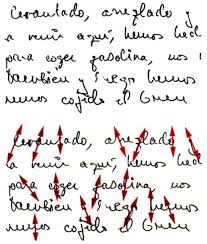 Levantado, arreglado y
a venir aquí, hemos hec
para coger gasolina, nos
tambien y luego hemos
hemos cogido el
Levantado, arreglado y
a venir aquí, hemos hec
para coger gasolina, nos
tambien y luego hemos
hemos cogido el